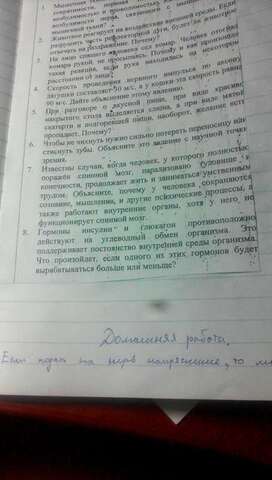 1. Мышечная
сократимости, нервная
возбудимостью и проводимостью
возбудимости нерва,
мышечной ткани?
2. Животное реагирует на воздействие внешней среды. Если
разрушить часть рефлекторной дуги, будет ли животное
отвечать на раздражение. Почему?
3. На лицо спящего человека сел комар. Человек отогнал
комара рукой, не просыпаясь. Почему и как произошла
такая реакция, если рука находилась на некотором
расстоянии от лица?
4. Скорость проведения нервного импульса по аксону
лягушки составляет 30 м/с, а у кошки эта скорость равна
90 м/с. Дайте объяснение данному явлению.
5. При разговоре о вкусной пище, при виде красиво
накрытого стола выделяется слюна, а при виде мятой
скатерти и подгоревшей пищи, наоборот, желание есть
пропадет. Почему?
6. Чтобы не чихнуть нужно сильно потереть переносицу или
стиснуть зубы. Объясните это явление с научной точки
зрения.
7. Известны случаи, когда человек, у которого полностью
поражен спинной мозг, парализовано туловище и
конечности, продолжает жить и заниматься умственным
трудом. Объясните, почему у человека сохраняются
сознание, мышление, и другие психические процессы, а
также работают внутренние органы, хотя у него не
функционирует спинной мозг.
8. Гормоны инсулин и глюкагон противоположно
действуют на углеводный обмен организма. Это
поддерживает постоянство внутренней среды организма.
Что произойдет, если одного из этих гормонов будет
вырабатываться больше или меньше?
Домашняя работа.
Если на нерв напряжение, то